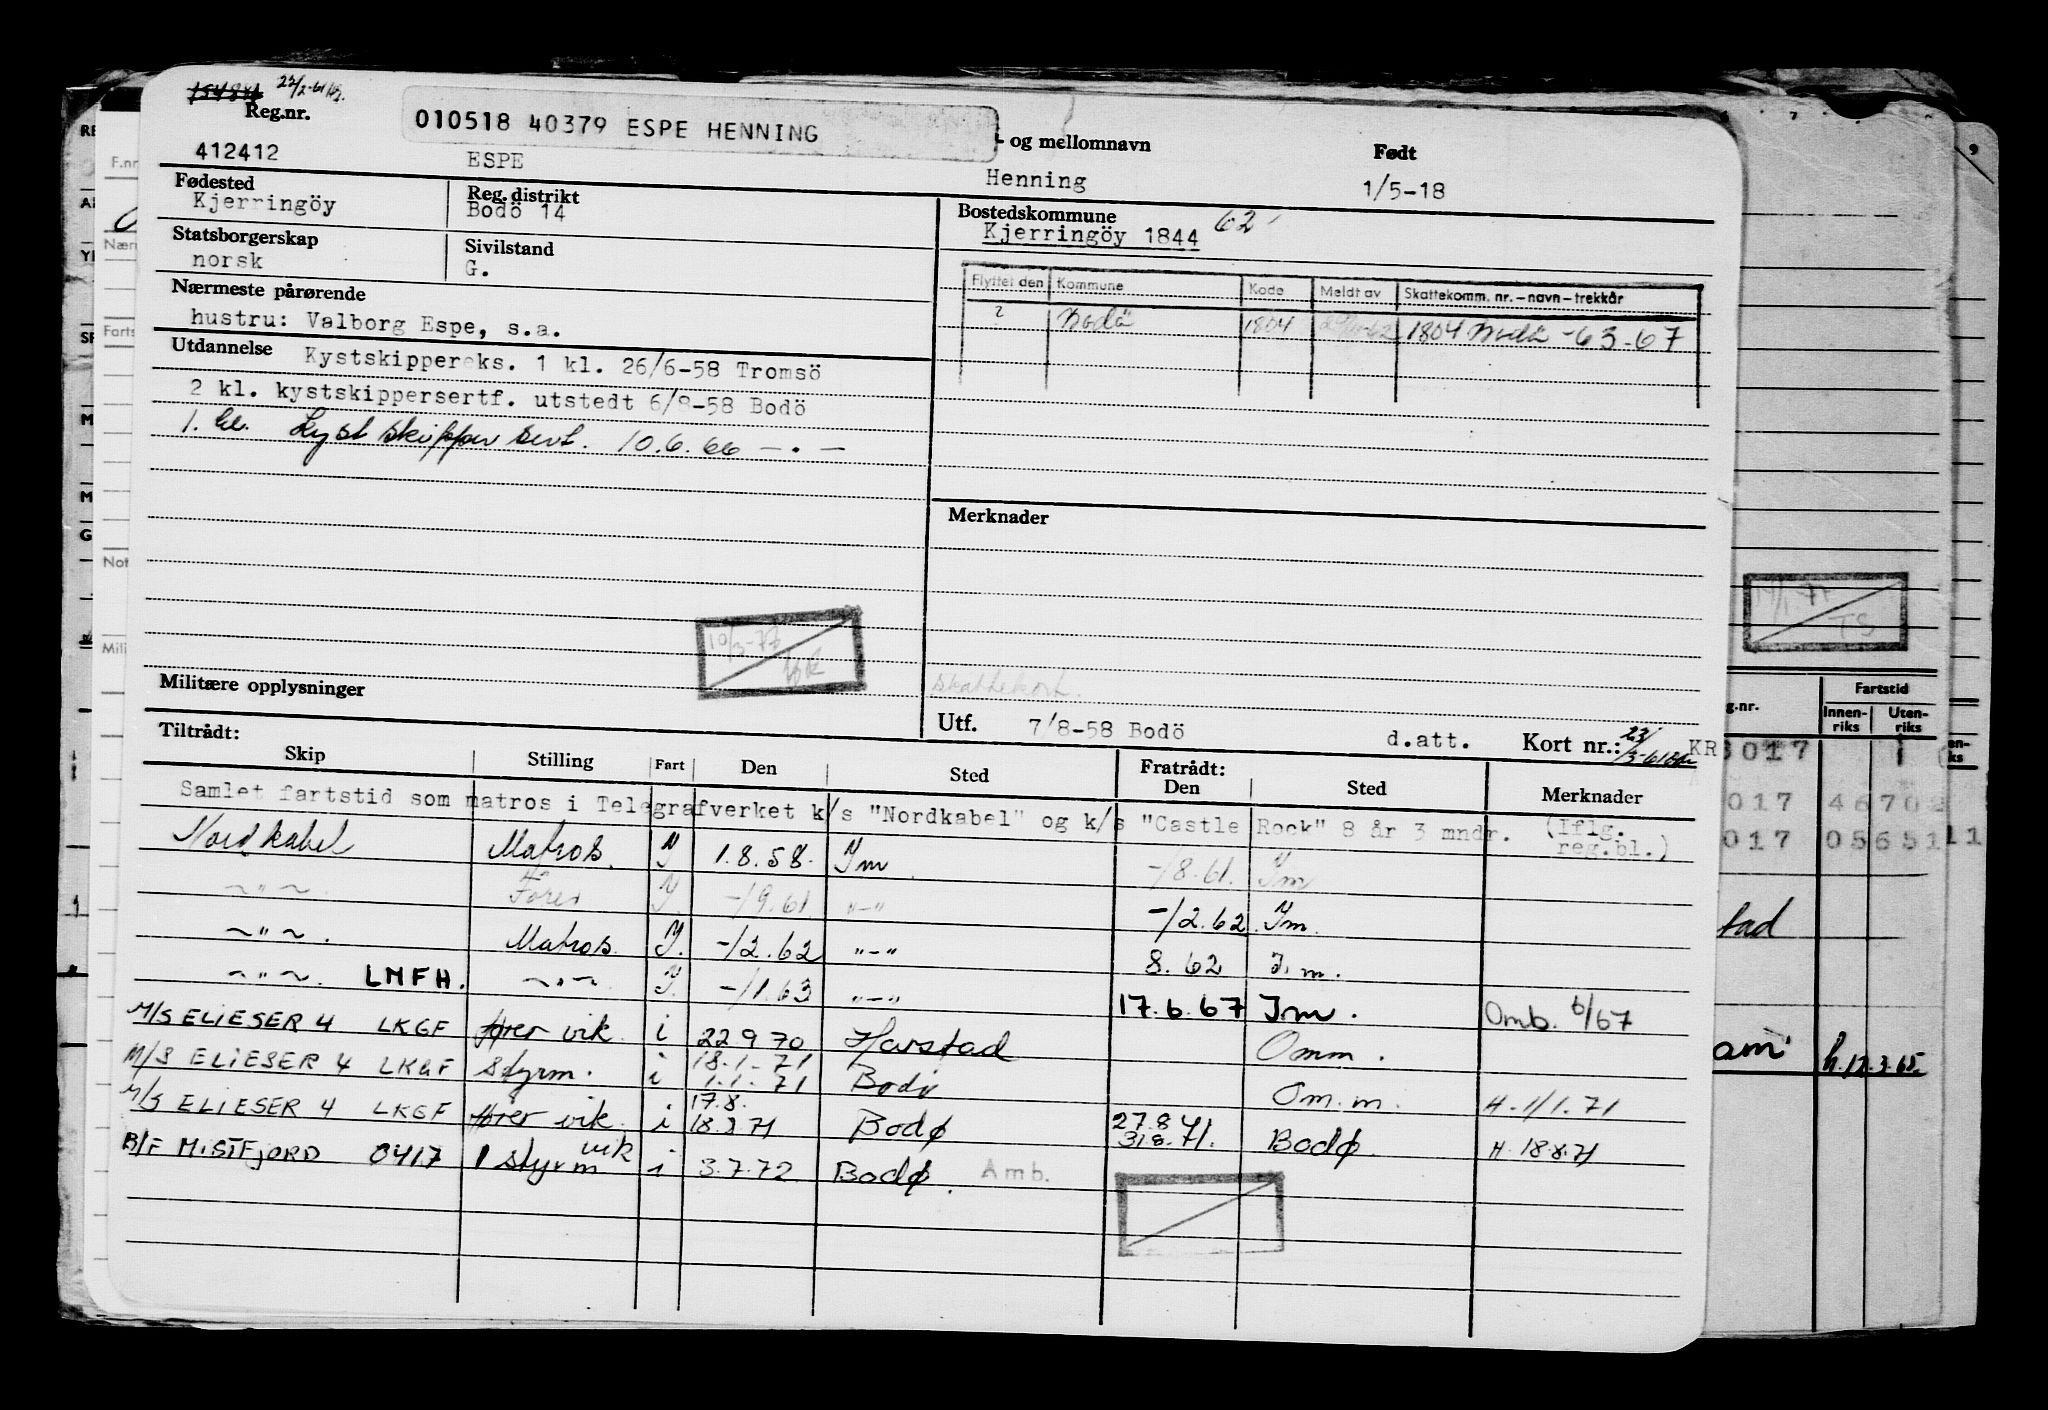 22/2-61
Reg.nr.
010518 40379 ESPE HENNING
- og mellomnavn
Født
412412 ESPE Henning 1/5-18
Fødested
Kjerringöy
Reg. distrikt
Bodö 14
Bostedskommune
Kjerringöy 1844 62
Statsborgerskap
norsk
Sivilstand
G.
Flyttet den Kommune Kode Meldt av Skattekomm. nr. – navn – trekkår
? Bodö 1804 1804 Bodö -63-67
Nærmeste pårørende
hustru: Valborg Espe, s.a.
Utdannelse Kystskippereks. 1 kl. 26/6-58 Tromsö
2 kl. kystskippersertf. utstedt 6/8-58 Bodö
1. kl. Kyst skipper sert. 10.6.66 — . —
Merknader
Militære opplysninger
Skattekort.
Utf. 7/8-58 Bodö d.att. Kort nr.: KR
Tiltrådt:
Skip Stilling Fart Den Sted Fratrådt: Den Sted Merknader
Samlet fartstid som matros i Telegrafverket k/s "Nordkabel" og k/s "Castle Rock" 8 år 3 mndr. (Iflg. reg.bl.)
Nordkabel Matros. I 1.8.58. Im -/8.61. Im
~"~ Fører I. -/9.61 "-" -/2.62 Im.
~"~. Matros. I. -/2.62 "-" 8.62 I.m.
~"~. LMFH. ~"~. I. -/1.63 "-" 17.6.67 I.m. Omb. 6/67
M/S ELIESER 4 LKGF fører vik. i 22 9 70 Harstad Omm.
M/S ELIESER 4 LKGF Styrm. i 18.1.71 1.1.71 Bodø Om.m. H. 1/1.71
M/S ELIESER 4 LKGF fører vik. i 17.8. 18.8.71 Bodø 27.8.71 31.8.71. Bodø H. 18.8.71
B/F MISTFJORD 0417 1 styrm vik i 3.7.72 Bodø. Amb.
RE
F.nr
Nærm
Farts
SF
M
M
G
Not
Mili
TS
g.nr.
Fartstid
Innen-riks
Uten-riks
en-
ks
6017
017 4670
017 0565111
tad
am h.12.3.65